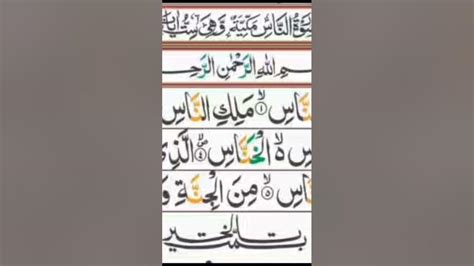 سُوْرَةُ النَّاسِ مَكِّيَّةٌ وَّهِيَ سِتُّ اٰيَاتٍ
سْمِ اللهِ الرَّحْمٰنِ الرَّحِـ
نَّاسِ ۙ﴿۱﴾ مَلِكِ النَّاسِ
سِ ۙ۬ الْخَنَّاسِ ۪ۙ﴿۴﴾ الَّذِيْ
نَّاسِ ۙ﴿۵﴾ مِنَ الْجِنَّةِ وَ
تمت بالخير